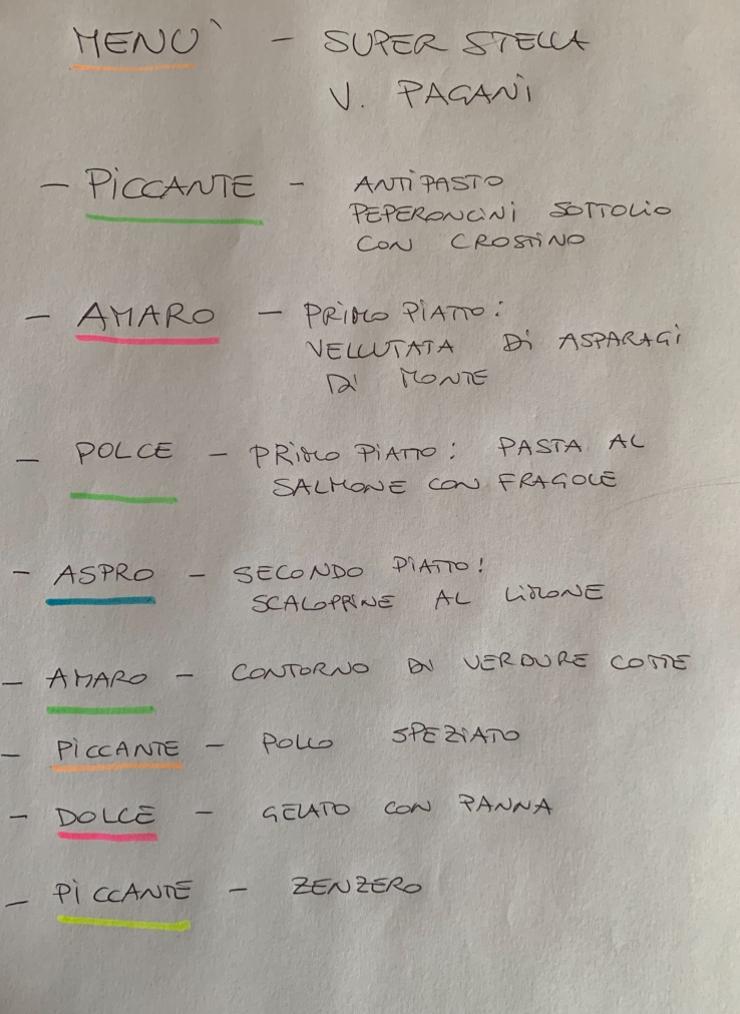 MENU` - SUPER STELLA
V. PAGANi
- PiCCANTE - ANTiPASTO
PEPERONCiNi SOTTOLiO
CON CROSTiNO
- AMARO - PRiMO PiATTO:
VELLUTATA Di ASPARAGi
Di MONTE
- DOLCE - PRiMO PiATTO: PASTA AL
SALMONE CON FRAGOLE
- ASPRO - SECONDO PiATTO:
SCALOPPiNE AL LiMONE
- AMARO - CONTORNO Di VERDURE COTTE
- PiCCANTE - POLLO SPEZiATO
- DOLCE - GELATO CON PANNA
- PiCCANTE - ZENZERO